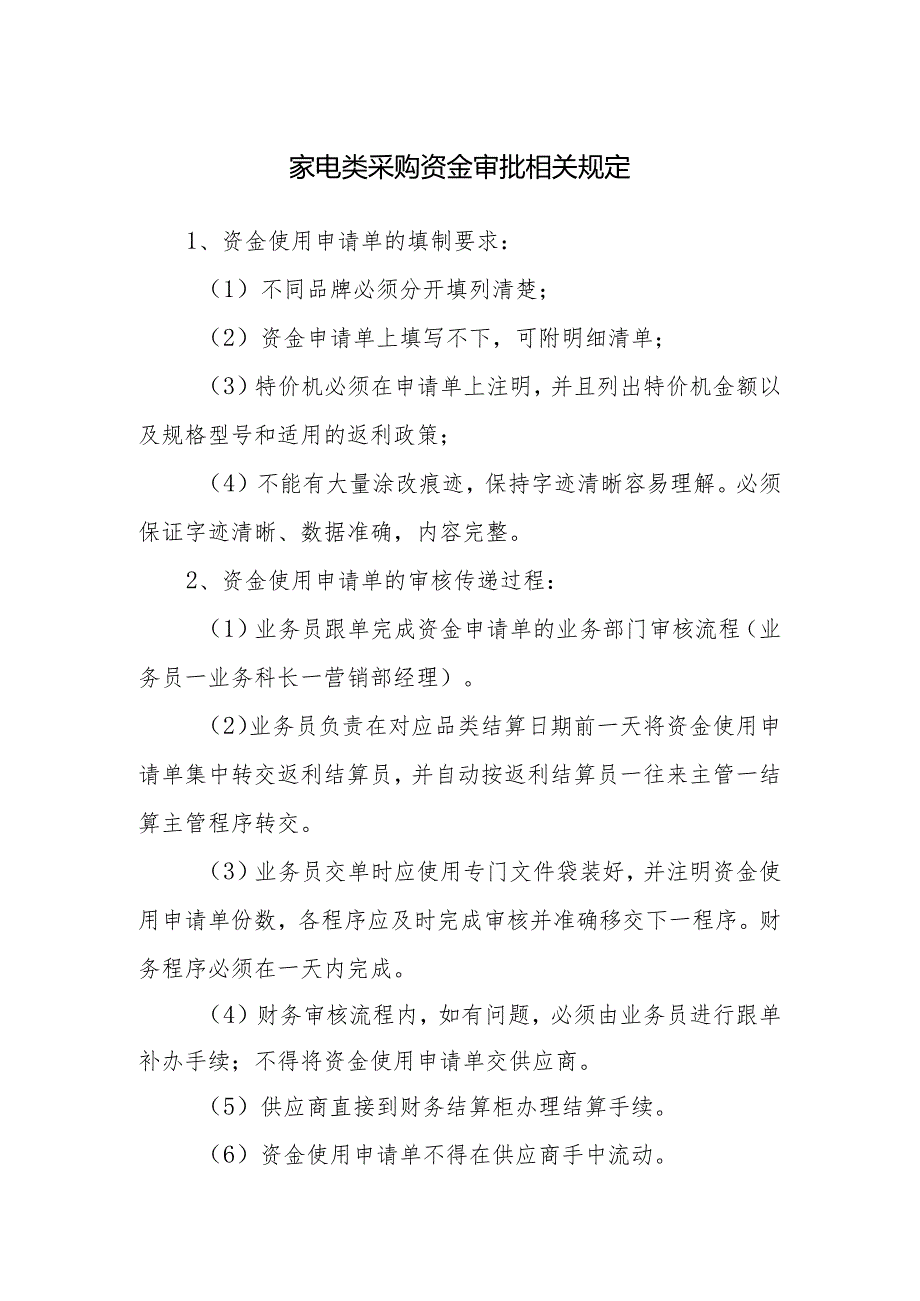 家电类采购资金审批相关规定
1、资金使用申请单的填制要求：
（1）不同品牌必须分开填列清楚；
（2）资金申请单上填写不下，可附明细清单；
（3）特价机必须在申请单上注明，并且列出特价机金额以
及规格型号和适用的返利政策；
（4）不能有大量涂改痕迹，保持字迹清晰容易理解。必须
保证字迹清晰、数据准确，内容完整。
2、资金使用申请单的审核传递过程：
（1）业务员跟单完成资金申请单的业务部门审核流程（业
务员一业务科长一营销部经理）。
（2）业务员负责在对应品类结算日期前一天将资金使用申
请单集中转交返利结算员，并自动按返利结算员一往来主管一结
算主管程序转交。
（3）业务员交单时应使用专门文件袋装好，并注明资金使
用申请单份数，各程序应及时完成审核并准确移交下一程序。财
务程序必须在一天内完成。
（4）财务审核流程内，如有问题，必须由业务员进行跟单
补办手续；不得将资金使用申请单交供应商。
（5）供应商直接到财务结算柜办理结算手续。
（6）资金使用申请单不得在供应商手中流动。